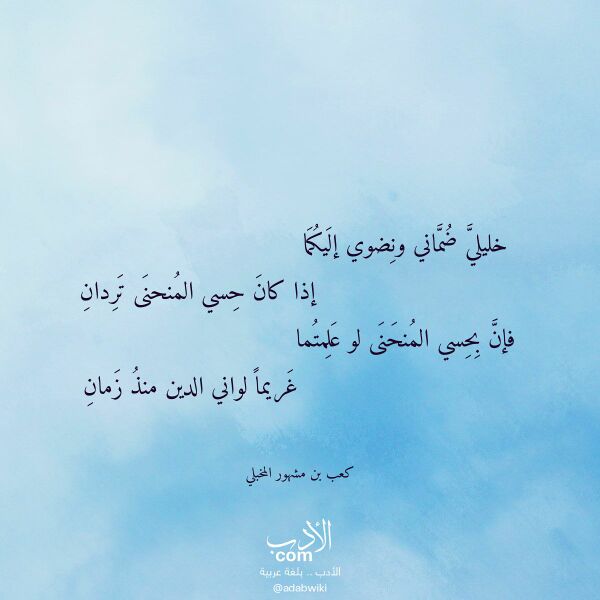 خليليَّ ضُمَّاني ونِضوي إلَيكُمَا
إذا كانَ حِسي المُنحنَى تَرِدانِ
فإنَّ بِحِسي المُنحَنَى لو عَلِمتُما
غَريماً لواني الدين منذُ زَمانِ
كعب بن مشهور المخبلي
الأدب
com
الأدب .. بلغة عربية
@adabwiki